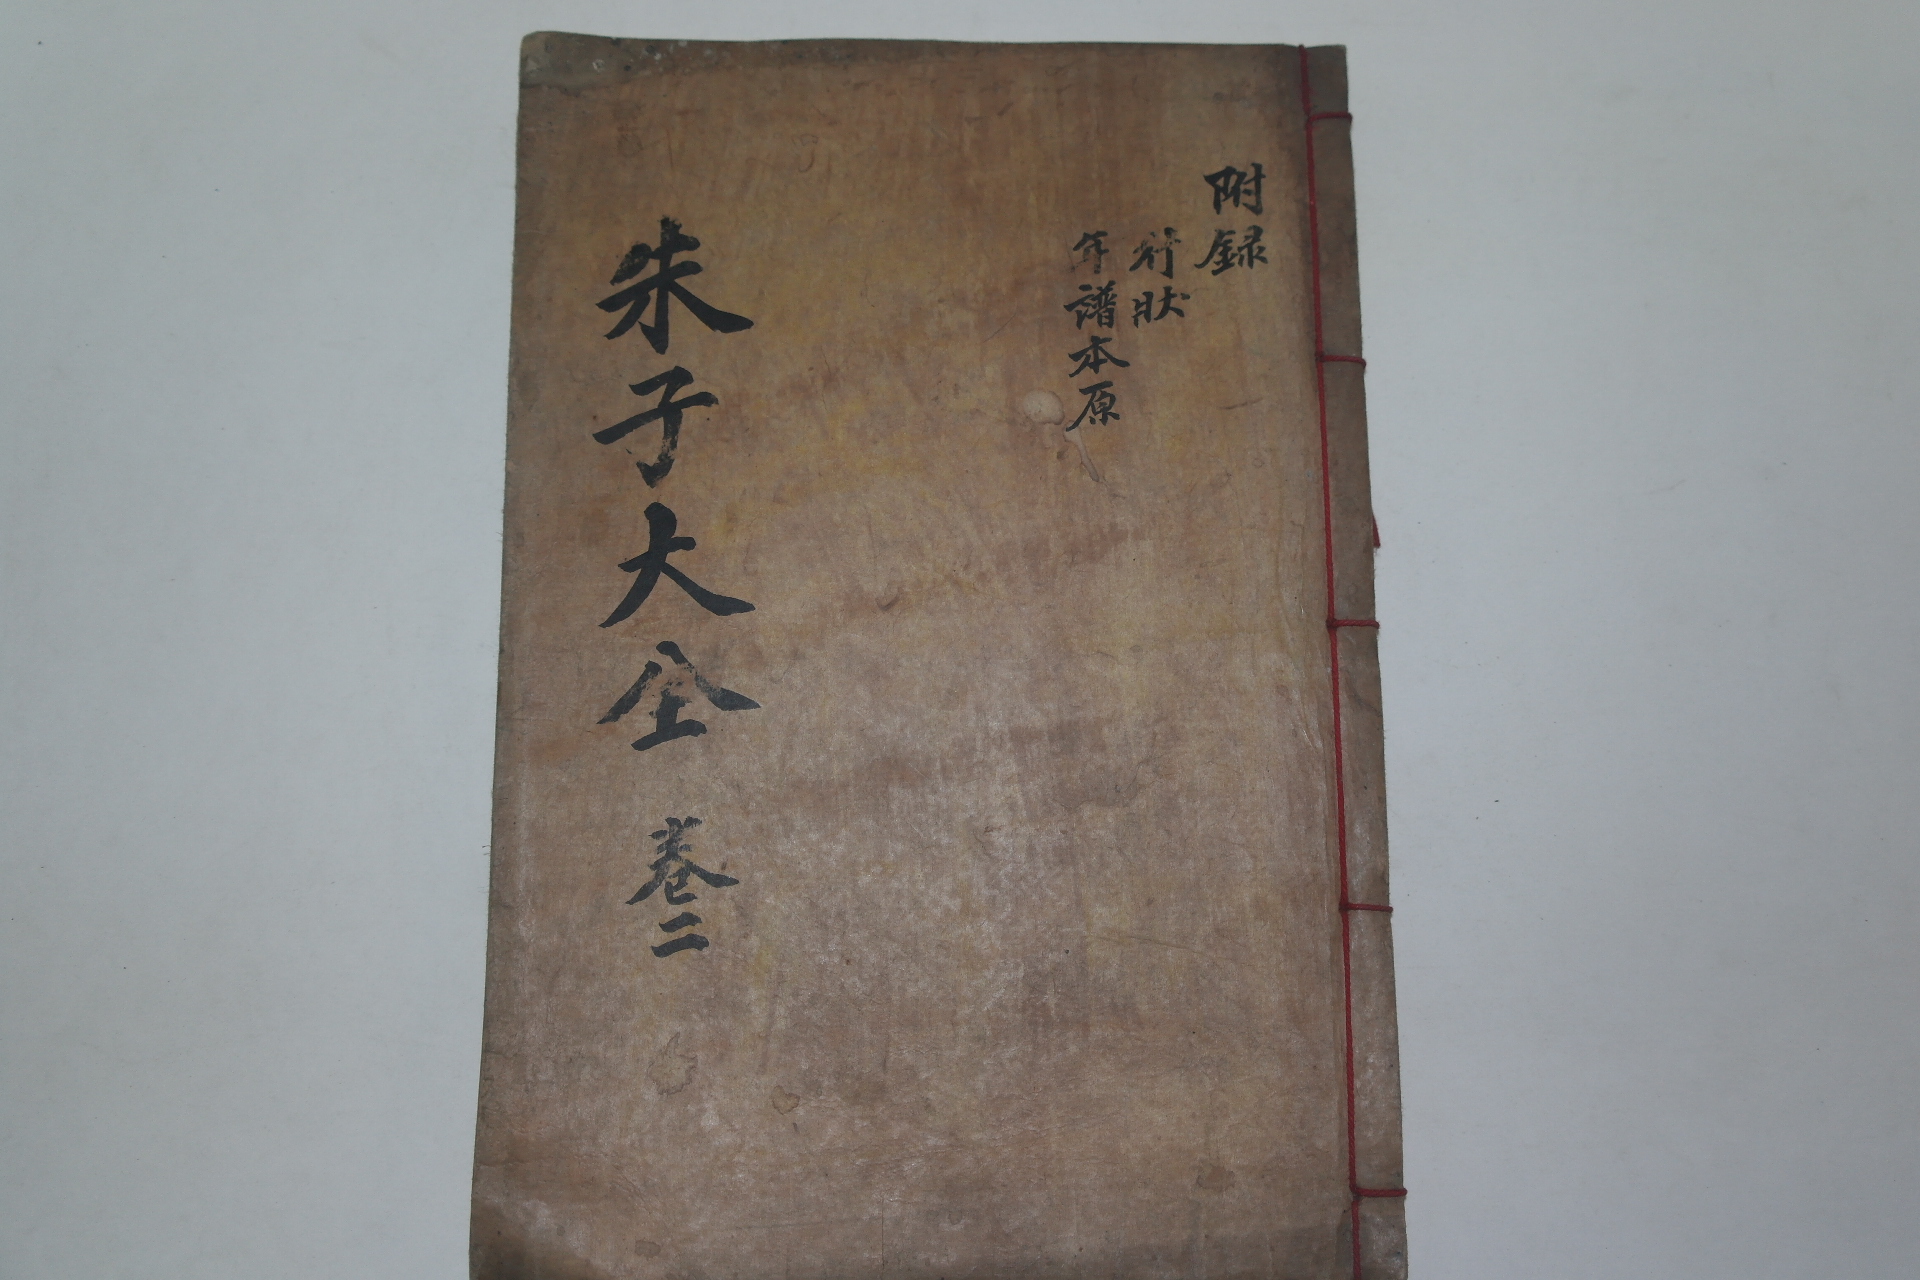 附録
行狀
年譜本原
朱子大全 卷二